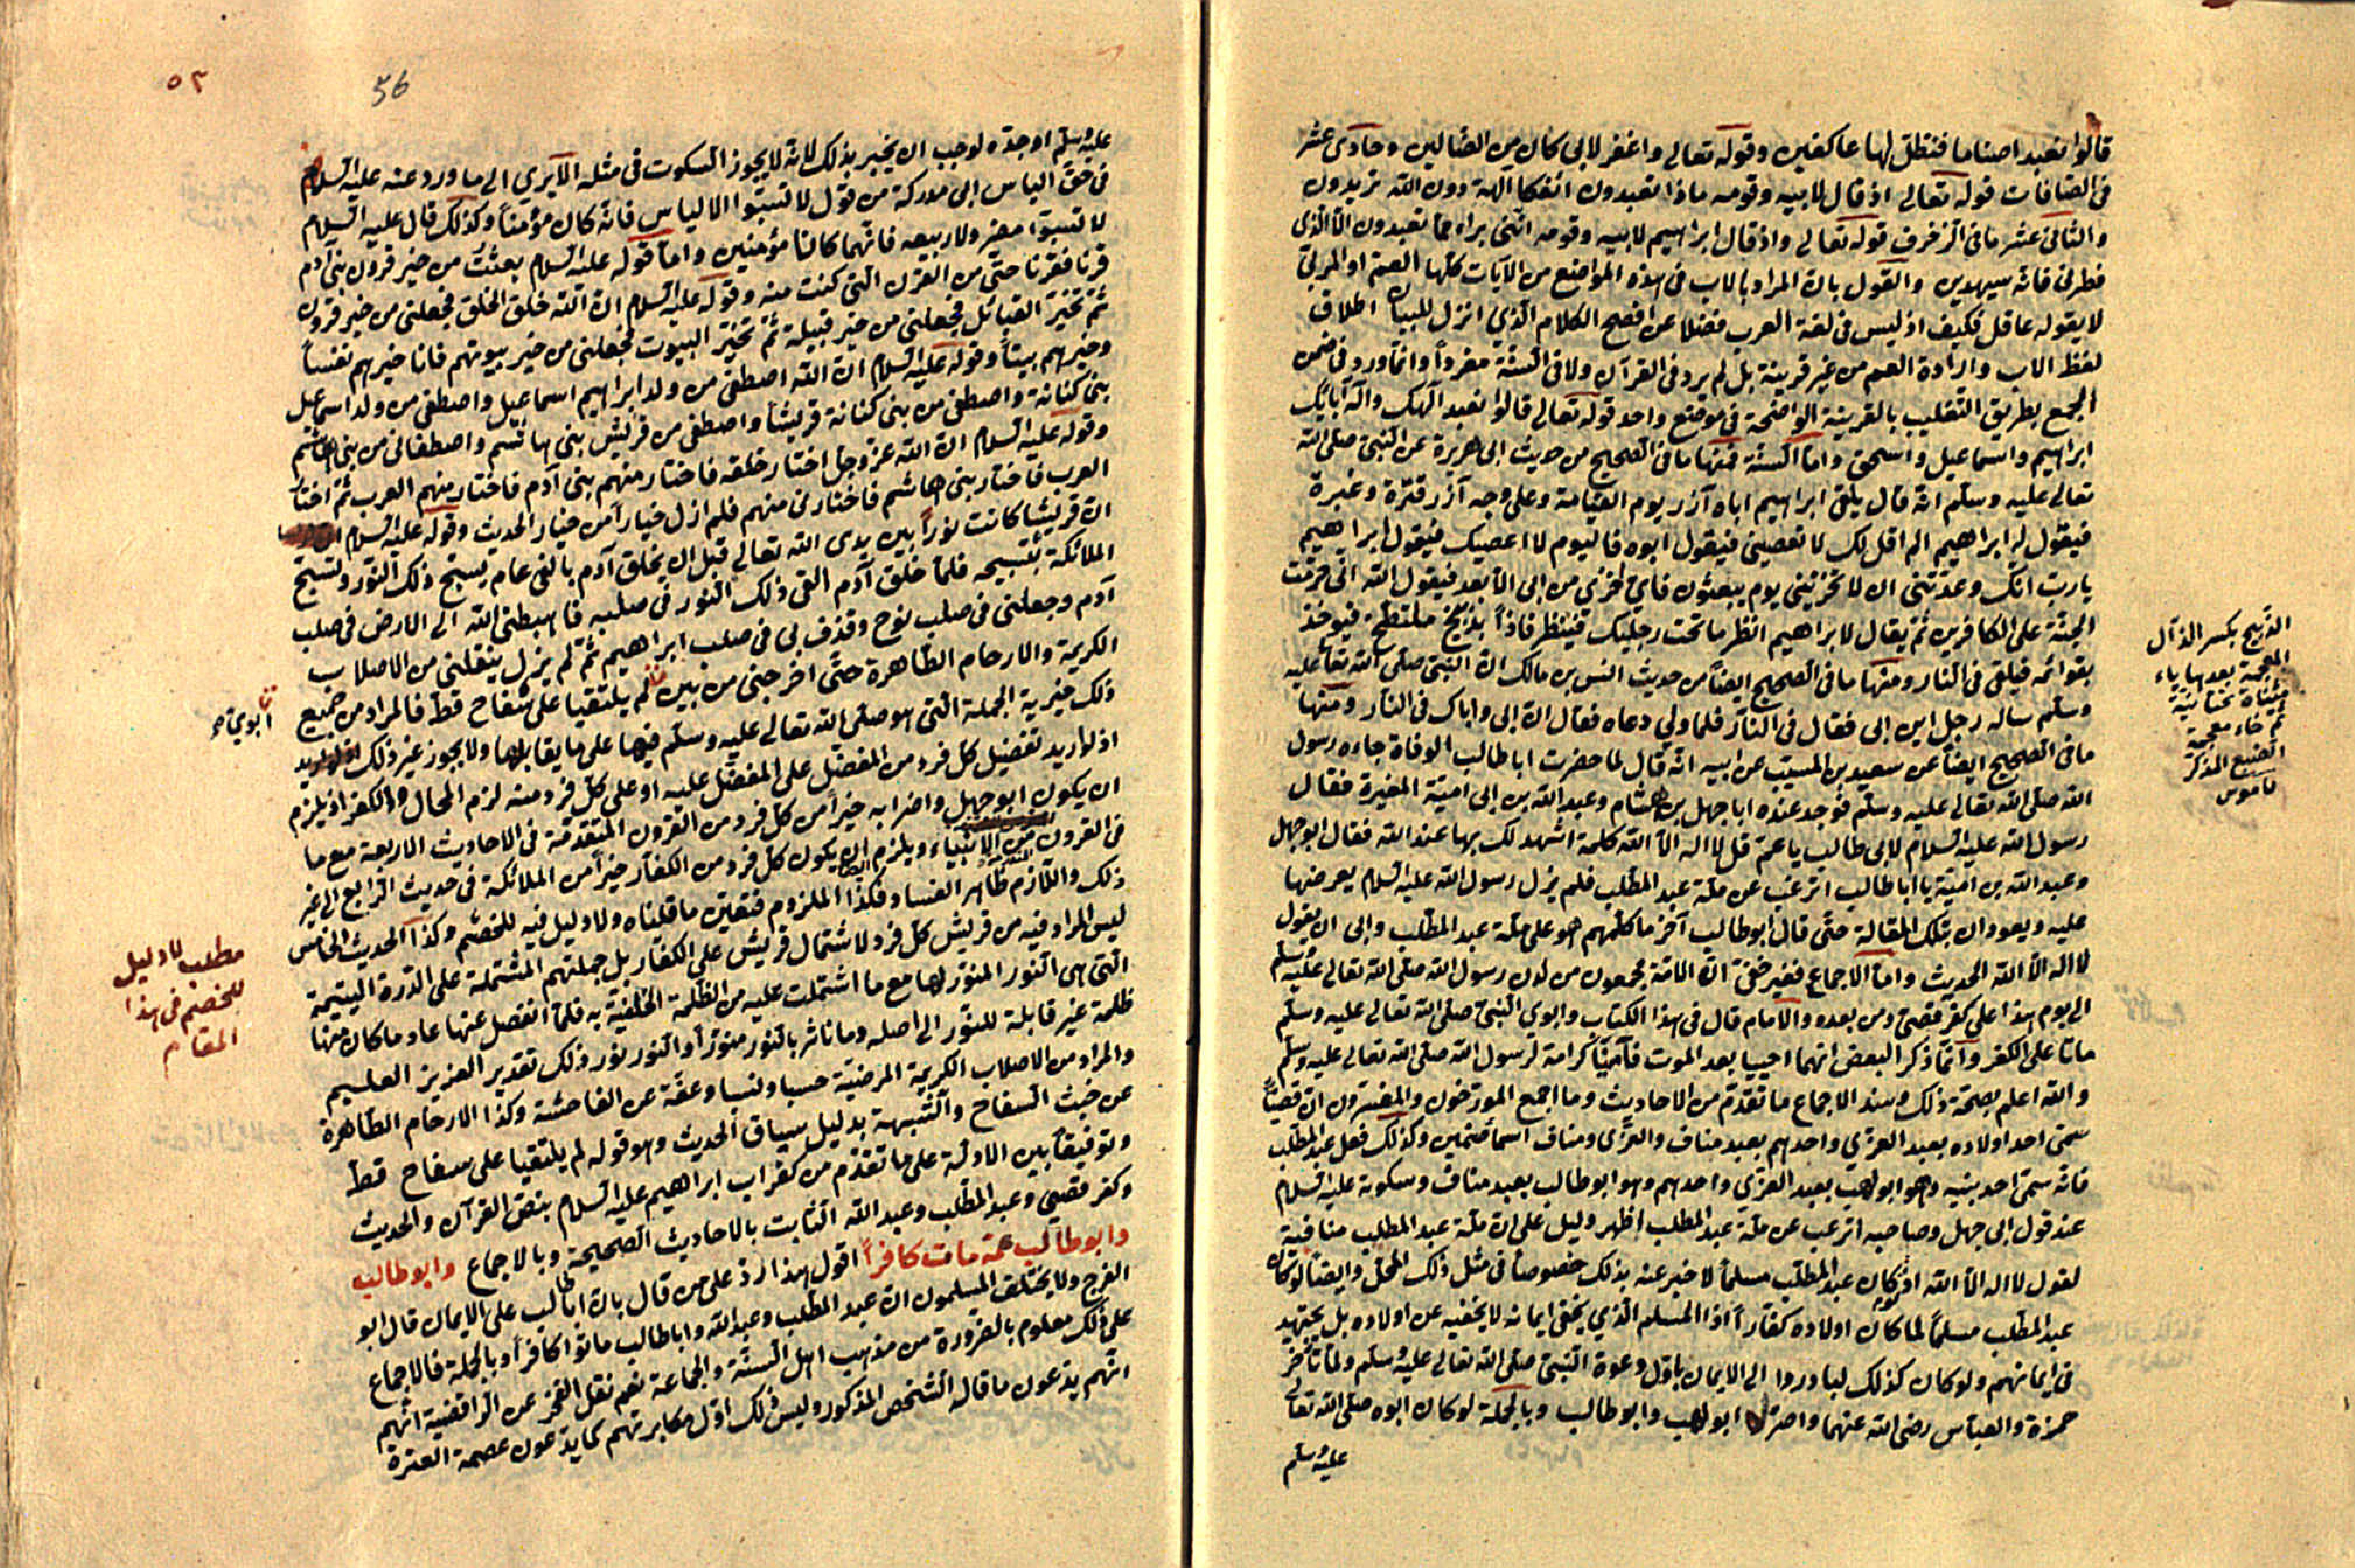 قالوا نعبد اصناما فنظل لها عاكفين وقوله تعالى واغفر لابى كان من الضالين وحادى عشر
فى الصافات قوله تعالى اذ قال لابيه وقومه ماذا تعبدون ائفكا الهة دون الله تريدون
والثانى عشر ما فى الزخرف قوله تعالى واذ قال ابراهيم لابيه وقومه اننى براء مما تعبدون الا الذى
فطرنى فانه سيهدين والقول بان المراد بالاب فى هذه المواضع من الآيات كلها العم او المربى
لا يقوله عاقل فكيف اذ ليس فى لغة العرب فضلا عن افصح الكلام الذي انزل للبيان اطلاق
لفظ الاب وارادة العم من غير قرينة بل لم يرد فى القرآن ولا فى السنة مفرداً وانما ورد فى ضمن
الجمع بطريق التغليب بالقرينة الواضحة فى موضع واحد قوله تعالى قالوا نعبد آلهك وآله آبائك
ابراهيم واسماعيل واسحق واما السنة فمنها ما فى الصحيح من حديث ابى هريرة عن النبى صلى الله
تعالى عليه وسلم انه قال يلقى ابراهيم اباه آزر يوم القيامة وعلى وجه آزر قترة وغبرة
فيقول له ابراهيم الم اقل لك لا تعصينى فيقول ابوه فاليوم لا اعصيك فيقول ابراهيم
يا رب انك وعدتنى ان لا تخزينى يوم يبعثون فاي خزي من ابى الابعد فيقول الله انى حرمت
الجنة على الكافرين ثم يقال لابراهيم انظر ما تحت رجليك فينظر فاذا بذيخ ملتطخ فيوخذ
بقوائمه فيلقى فى النار ومنها ما فى الصحيح ايضا من حديث انس بن مالك ان النبى صلى الله تعا عليه
وسلم ساله رجل اين ابى فقال فى النار فلما ولى دعاه فقال ان ابى واباك فى النار ومنها
ما فى الصحيح ايضا عن سعيد بن المسيب عن ابيه انه قال لما حضرت ابا طالب الوفاة جاءه رسول
الله صلى الله تعالى عليه وسلم فوجد عنده ابا جهل بن هشام وعبد الله بن ابى امية المغيرة فقال
رسول الله عليه السلام لابى طالب يا عم قل لا اله الا الله كلمة اشهد لك بها عند الله فقال ابو جهل
وعبد الله بن امية يا ابا طالب اترغب عن ملة عبد المطلب فلم يزل رسول الله عليه السلام يعرضها
عليه ويعودان بتلك المقالة حتى قال ابو طالب آخر ما كلمهم هو على ملة عبد المطلب وابى ان يقول
لا اله الا الله الحديث واما الاجماع فغير خفى ان الامة مجمعون من لدن رسول الله صلى الله تعالى عليه وسلم
الى يوم هذا على كفر قصى ومن بعده والامام قال فى هذا الكتاب وابوي النبى صلى الله تعالى عليه وسلم
ماتا على الكفر وانما ذكر البعض انهما احييا بعد الموت فآمنا كرامة لرسول الله صلى الله تعالى عليه وسلم
والله اعلم بصحة ذلك وسند الاجماع ما تقدم من الاحاديث وما اجمع المورخون والمفسرون ان قصيا
سمى احد اولاده بعبد العزي واحدهم بعبد مناف والعزى ومناف اسما صنمين وكذلك فعل عبد المطلب
فانه سمى احد بنيه وهو ابو لهب بعبد العزي واحدهم وهو ابو طالب بعبد مناف وسكوته عليه السلام
عند قول ابى جهل وصاحبه اترغب عن ملة عبد المطلب اظهر دليل على ان ملة عبد المطلب منافية
لقول لا اله الا الله اذ لو كان عبد المطلب مسلماً لاخبر عنه بذلك خصوصا فى مثل ذلك المحل وايضا لو كان
عبد المطلب مسلماً لما كان اولاده كفاراً اذ المسلم الذي يخفى ايمانه لا يخفيه عن اولاده بل يجتهد
فى ايمانهم ولو كان كذلك لبادروا الى الايمان باول دعوة النبى صلى الله تعالى عليه وسلم ولما تأخر
حمزة والعباس رضى الله عنهما واصر ابو لهب وابو طالب وبالجملة لو كان ابوه صلى الله تعا
عليه وسلم
الذيخ بكسر الذال
المعجمة بعدها ياء
مثناة تحتانية
ثم خاء معجمة
الضبع المذكر
قاموس
٥٢
56
عليه وسلم او جده لوجب ان يخبر بذلك لانه لا يجوز السكوت فى مثله الا يري الى ما ورد عنه عليه السلام
فى حق الياس ابى مدركة من قول لا تسبوا الالياس فانه كان مؤمنا وكذلك قال عليه السلام
لا تسبوا مضر ولا ربيعه فانهما كانا مؤمنين واما قوله عليه السلام بعثت من خير قرون بنى آدم
قرنا فقرنا حتى من القرن التى كنت منه وقوله عليه السلام ان الله خلق الخلق فجعلنى من خير قرون
ثم تخير القبائل فجعلنى من خير قبيلة ثم تخير البيوت فجعلنى من خير بيوتهم فانا خيرهم نفساً
وخيرهم بيتاً وقوله عليه السلام ان الله اصطفى من ولد ابراهيم اسماعيل واصطفى من ولد اسماعيل
بنى كنانة واصطفى من بنى كنانة قريشا واصطفى من قريش بنى هاشم واصطفانى من بنى هاشم
وقوله عليه السلام ان الله عز وجل اختار خلقه فاختار منهم بنى آدم فاختار منهم العرب ثم اختار
العرب فاختار بنى هاشم فاختارنى منهم فلم ازل خياراً من خيار الحديث وقوله عليه السلام
ان قريشا كانت نوراً بين يدى الله تعالى قبل ان يخلق آدم بالفى عام يسبح ذلك النور وتسبح
الملائكة بتسبيحه فلما خلق آدم القى ذلك النور فى صلبه فاهبطنى الله الى الارض فى صلب
آدم وجعلنى فى صلب نوح وقذف بى فى صلب ابراهيم ثم لم يزل ينقلنى من الاصلاب
الكريمة والارحام الطاهرة حتى اخرجنى من بين لم يلتقيا على سفاح قط فالمراد من جميع
ذلك خيرية الجملة التى هو صلى الله تعالى عليه وسلم فيها على ما يقابلها ولا يجوز غير ذلك
اذ لو اريد تفضيل كل فرد من المفضل على المفضل عليه او على كل فرد منه لزم المحال والكفر اذ يلزم
ان يكون ابو جهل واضرابه خيراً من كل فرد من القرون المتقدمة فى الاحاديث الاربعة مع ما
فى القرون من الانبياء ويلزم ان يكون كل فرد من الكفار خيراً من الملائكة فى حديث الرابع الى غير
ذلك واللازم ظاهر الفساد فكذا الملزوم فتعين ما قلناه ولا دليل فيه للخصم وكذا الحديث الخامس
ليس المراد فيه من قريش كل فرد لاشتمال قريش على الكفار بل جملتهم المشتملة على الدرة اليتيمة
التى هى النور المنور لها مع ما اشتملت عليه من الظلمة الخلفية به فلما انفصل عنها عاد ما كان منها
ظلمة غير قابلة للنور الى اصله وما تاثر بالنور منوراً والنور نور ذلك تقدير العزيز العليم
والمراد من الاصلاب الكريمة المرضية حسبا ونسبا وعفة عن الفاحشة وكذا الارحام الطاهرة
عن خبث السفاح والشبهة بدليل سياق الحديث وهو قوله لم يلتقيا على سفاح قط
وتوفيقاً بين الادلة على ما تقدم من كفر اب ابراهيم عليه السلام بنص القرآن والحديث
وكفر قصي وعبد المطلب وعبد الله الثابت بالاحاديث الصحيحة وبالاجماع وابو طالب
وابو طالب عمه مات كافراً اقول هذا رد على من قال بان ابا طالب على الايمان قال ابو
الفرج ولا يختلف المسلمون ان عبد المطلب وعبد الله وابا طالب ماتوا كافراً وبالجملة فالاجماع
على ذلك معلوم بالضرورة من مذهب اهل السنة والجماعة نعم نقل الفخر عن الرافضية انهم
انهم يدعون ما قاله الشخص المذكور وليس ذلك اول مكابرتهم كما يدعون عصمة العترة
ابوي
مطلب لا دليل
للخصم فى هذا
المقام